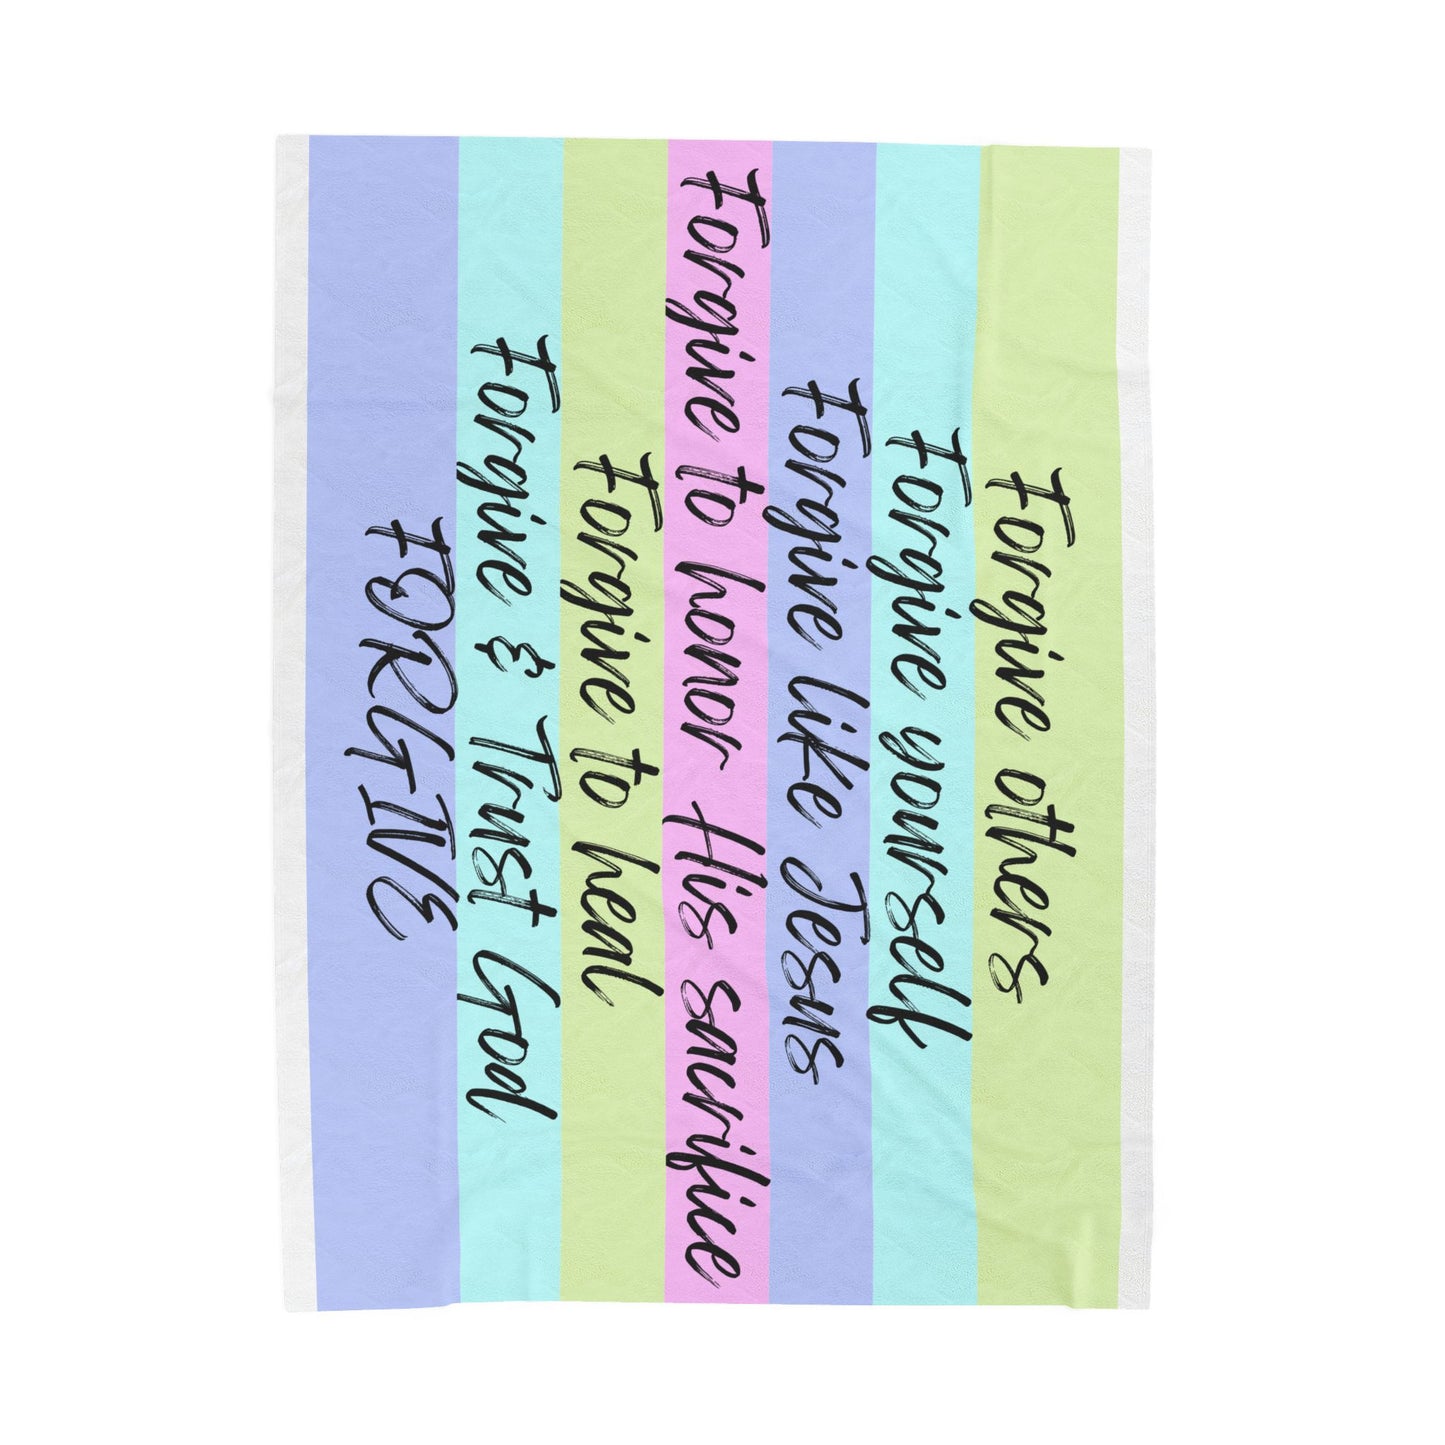 Forgive others
Forgive yourself
Forgive like Jesus
Forgive to honor His sacrifice
Forgive to heal
Forgive & Trust God
FORGIVE